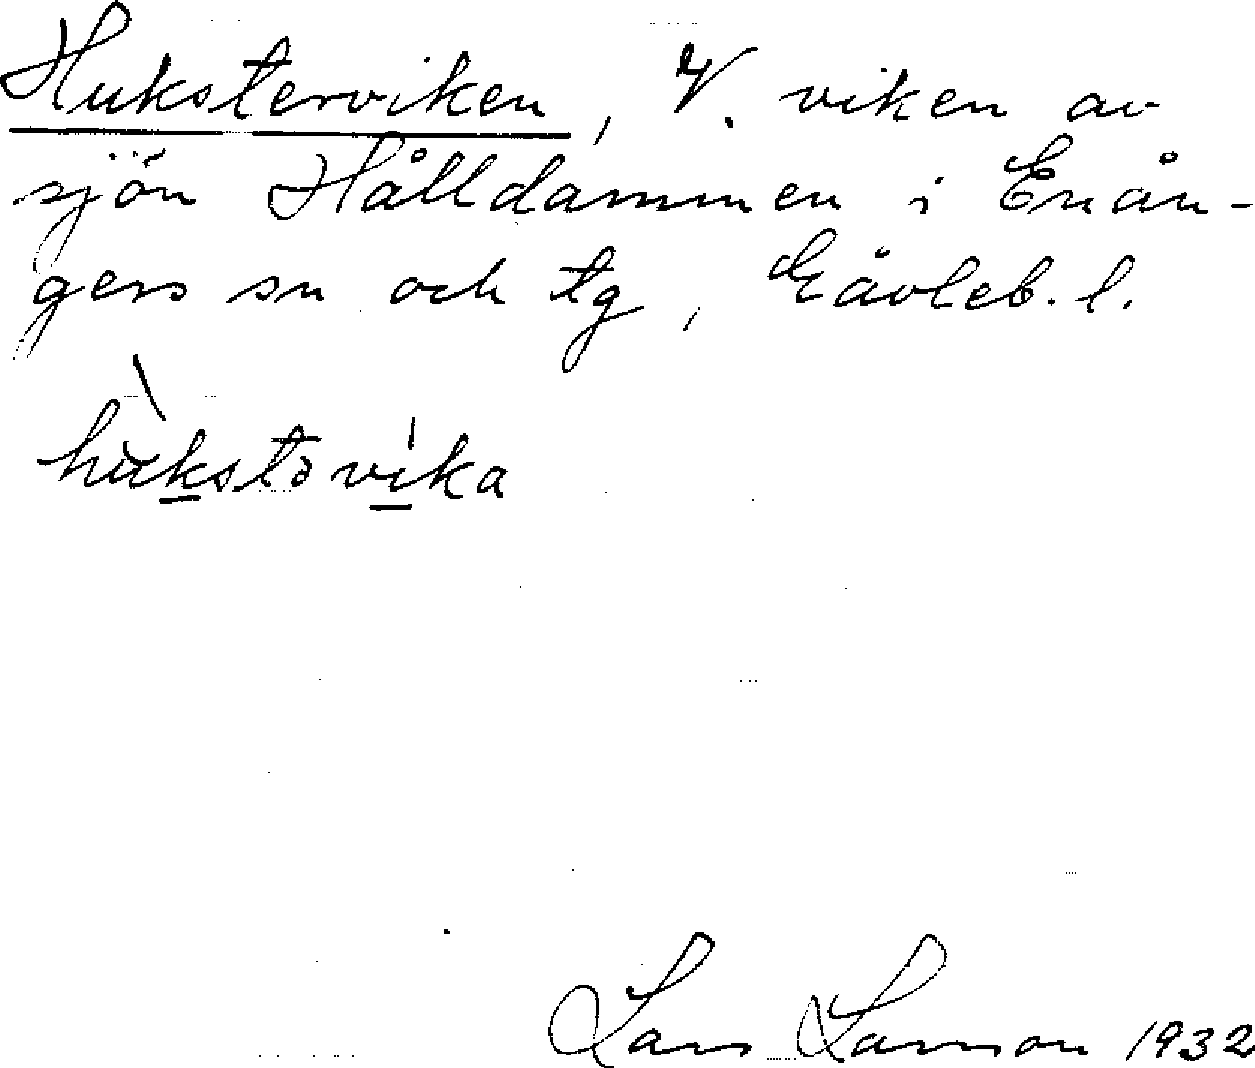 Huksterviken, V. viken av
sjön Hålldammen i Enån-
gers sn och tg, Gävleb. l.
hukstəvika
Lars Larsson 1932